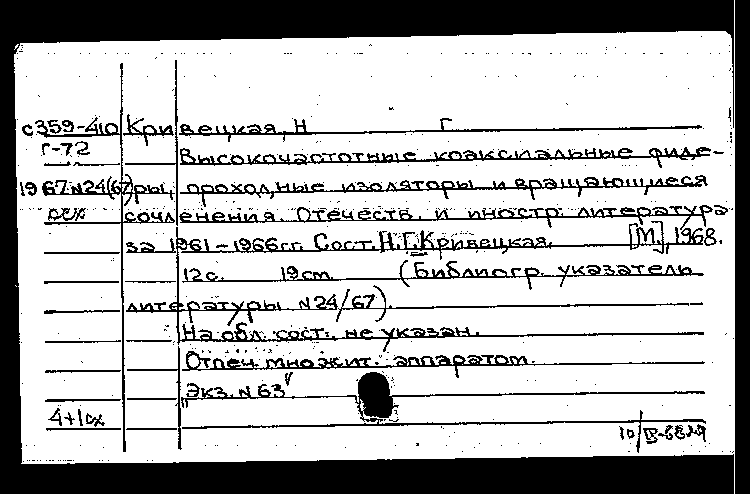 с359-410 Кривецкая, Н Г
Г-72
Высокочастотные коаксиальные фиде-
1967 N24(67) ры, проходные изоляторы и вращающиеся
сочленения. Отечеств. и иностр. литература
за 1961-1966гг. Сост. Н.Г.Кривецкая. [М.], 1968.
12с. 19см. (Библиогр. указатель
литературы N24/67).
На обл. сост. не указан.
Отпеч. множит. аппаратом.
"Экз. N 63".
4+1